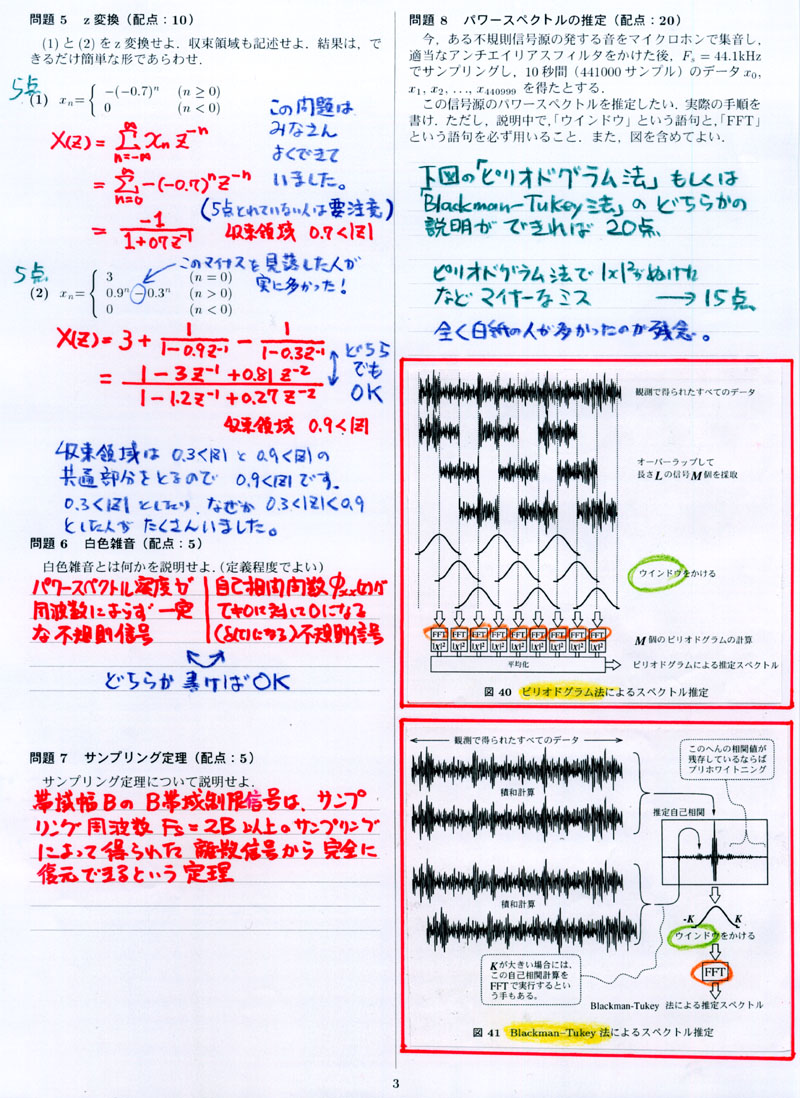 問題 5　z 変換（配点：10）
(1) と (2) を z 変換せよ．収束領域も記述せよ．結果は，で
きるだけ簡単な形であらわせ．
5点
(1)　xn= { −(−0.7)^n　(n ≥ 0)
0　(n < 0)
この問題は
みなさん
よくできて
いました。
(5点とれていない人は要注意)
X(z) = Σ[n=-∞, ∞] xn z^-n
= Σ[n=0, ∞] -(-0.7)^n z^-n
= -1 / (1+0.7z^-1)
収束領域 0.7<|z|
5点
このマイナスを見落した人が
実に多かった！
(2)　xn= { 3　(n = 0)
0.9^n − 0.3^n　(n > 0)
0　(n < 0)
X(z) = 3 + 1/(1-0.9z^-1) - 1/(1-0.3z^-1)
= (1-3z^-1+0.81z^-2) / (1-1.2z^-1+0.27z^-2)
どちら
でも
OK
収束領域 0.9<|z|
収束領域は 0.3<|z| と 0.9<|z| の
共通部分をとるので 0.9<|z| です。
0.3<|z| としたり、なぜか 0.3<|z|<0.9
とした人が たくさんいました。
問題 6　白色雑音（配点：5）
白色雑音とは何かを説明せよ．(定義程度でよい)
パワースペクトル密度が
周波数によらず一定
な不規則信号
自己相関関数 φxx(τ)が
τ≠0に対して0になる
(δ(τ)になる)不規則信号
どちらか 書ければOK
問題 7　サンプリング定理（配点：5）
サンプリング定理について説明せよ．
帯域幅Bの B帯域制限信号は、サンプ
リング周波数 Fs=2B 以上のサンプリング
によって得られた 離散信号から 完全に
復元できるという 定理
問題 8　パワースペクトルの推定（配点：20）
今，ある不規則信号源の発する音をマイクロホンで集音し，
適当なアンチエイリアスフィルタをかけた後，Fs = 44.1kHz
でサンプリングし，10 秒間（441000 サンプル）のデータ x0,
x1, x2, …, x440999 を得たとする．
この信号源のパワースペクトルを推定したい．実際の手順を
書け．ただし，説明中で，「ウインドウ」という語句と，「FFT」
という語句を必ず用いること．また，図を含めてよい．
下図の「ピリオドグラム法」もしくは
「Blackman-Tukey法」の どちらかの
説明が できれば 20点
ピリオドグラム法で |x|²がぬけた
など マイナーなミス → 15点
全く白紙の人が多かったのが残念。
観測で得られたすべてのデータ
オーバーラップして
長さLの信号M個を採取
ウインドウをかける
FFT FFT FFT FFT FFT FFT FFT FFT FFT
|X|² |X|² |X|² |X|² |X|² |X|² |X|² |X|² |X|²
M 個のピリオドグラムの計算
平均化
ピリオドグラムによる推定スペクトル
図 40　ピリオドグラム法によるスペクトル推定
観測で得られたすべてのデータ
このへんの相関値が
残存しているならば
プリホワイトニング
積和計算
推定自己相関
積和計算
-K K
ウインドウをかける
Kが大きい場合には、
この自己相関計算を
FFTで実行するとい
う手もある。
FFT
Blackman-Tukey 法による推定スペクトル
図 41　Blackman–Tukey 法によるスペクトル推定
3